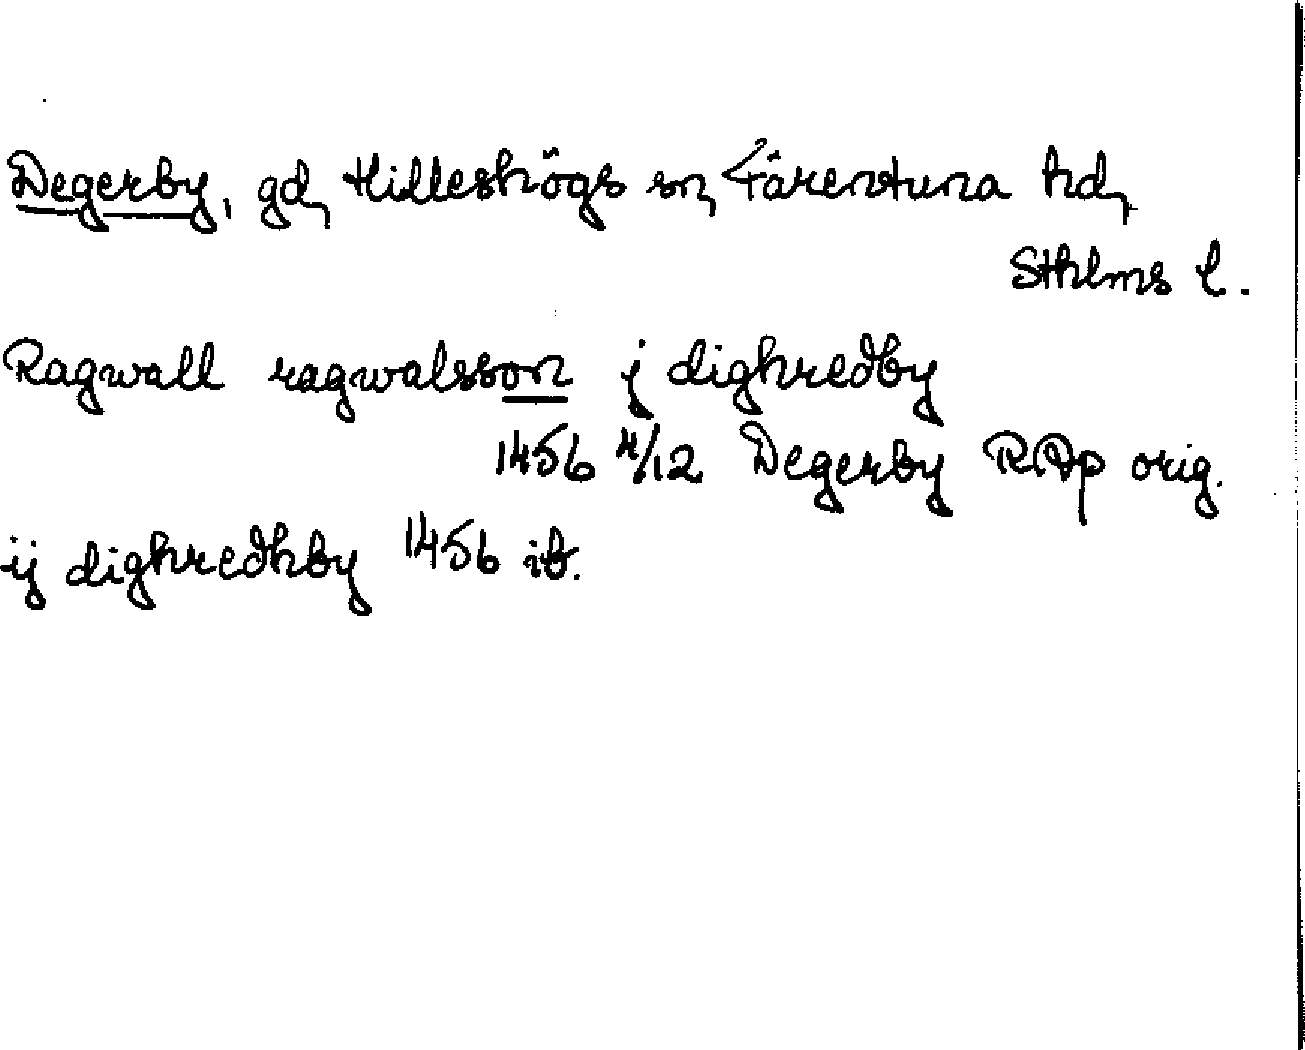 Degerby, gd, Hilleshögs sn, Färentuna hd,
Sthlms l.
Ragwall ragwalsson j dighredby
1456 4/12 Degerby RAp orig.
ij dighredhby 1456 ib.